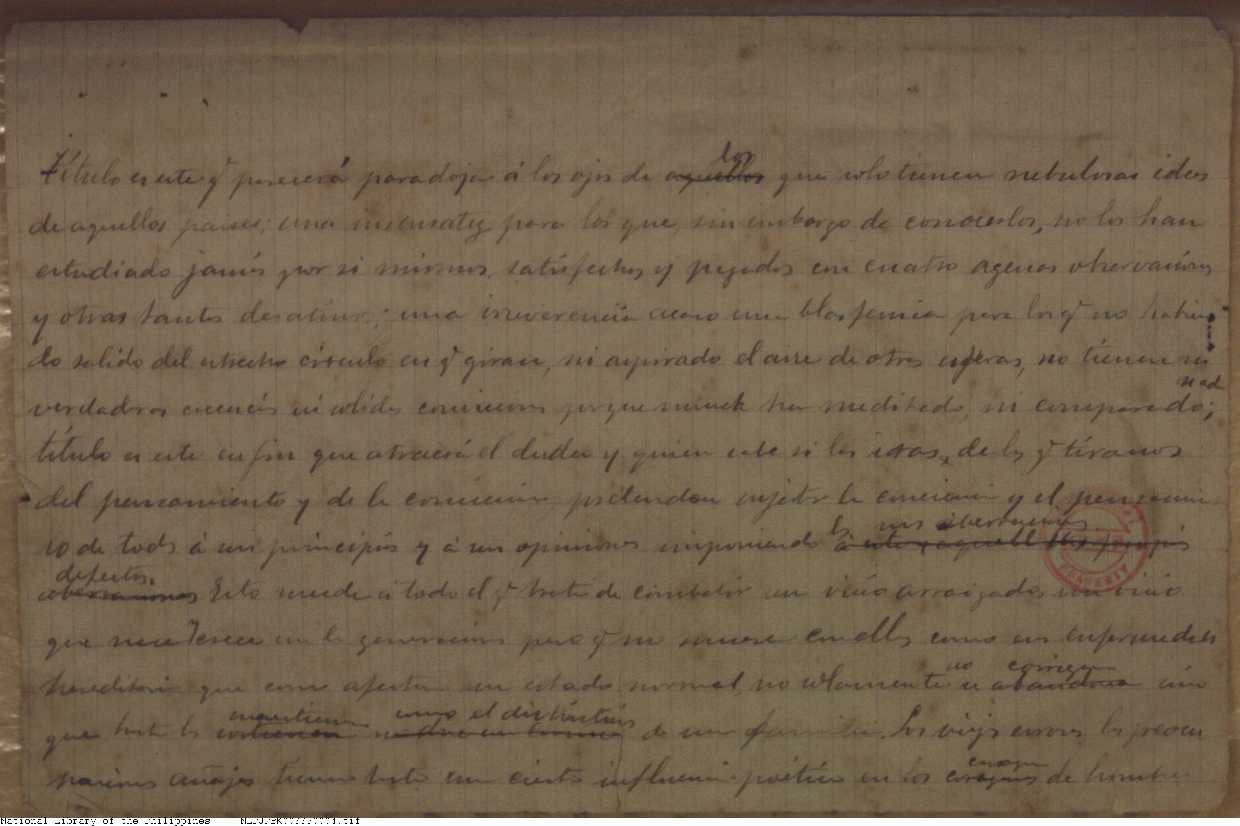 Título es este q.e parecerá paradoja á los ojos de aquellos los que solo tienen nebulosas ideas
de aquellos paises; una insensatez para los que, sin embargo de conocerlos, no los han
estudiado jamás por si mismos, satisfechos y pagados con cuatro agenas observaciones
y otros tantos desatinos; una irreverencia acaso una blasfemia para los q.e no habien
do salido del estrecho círculo en q.e giran, ni aspirado el aire de otras esferas, no tienen ni
verdaderas creencias ni solidas convicciones porque nunca han meditado, ni comparado;
título es este en fin que atraerá el desden y quien sabe si las iras, de los q.e tiranos
del pensamiento y de la conviccion pretenden sujetar la conciencia y el pensamien
to de todos á sus principios y á sus opiniones imponiendo á sus aberraciones
defectos. Esto sucede á todo el q.e trata de combatir un vicio arraigado, un vicio
que nace crece en la generacion pero q.e no muere con ella como las enfermedades
hereditaria que como afectan un estado normal no solamente se no corrigen sino
que hasta la mantienen como el distintivo de una familia. Los viejos errores las preocu
paciones añejas tienen hasta una cierta influencia poética en los corazones de hombres
National Library of the Philippines